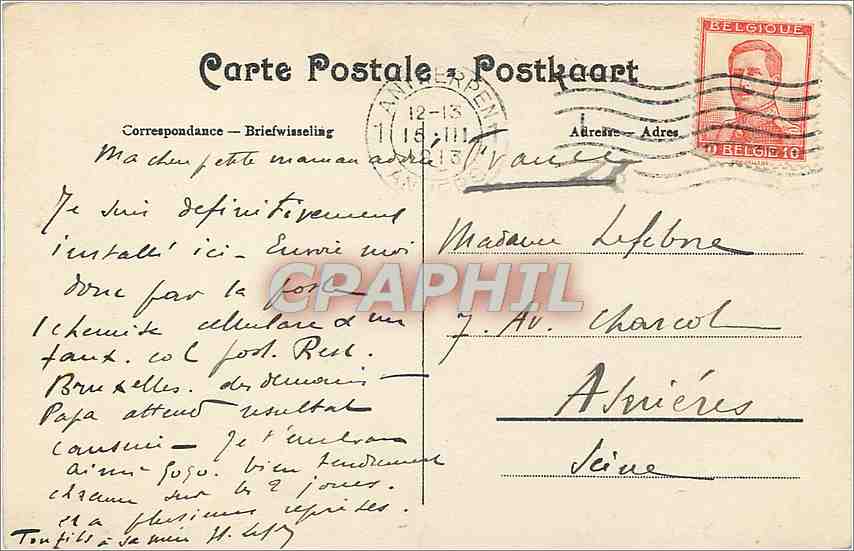 BELGIQUE
Carte Postale - Postkaart
ANTWERPEN
12-13
15 III
1913
10 BELGIË 10
Correspondance — Briefwisseling
Adresse — Adres
Ma chère petite maman adorée
France
Je suis définitivement
installé ici - Envoie moi
donc par la poste
1 chemise cellulare & un
faux. col post. Rest.
Bruxelles. dès demain -
Papa attend résultat
Je t'embrasse
ainsi Gogo. bien tendrement
chacun sur les 2 joues.
et a plusieurs reprises.
Ton fils
Madame Lefebvre
7. Av. Charcot
Asnières
Seine
CPAPHIL